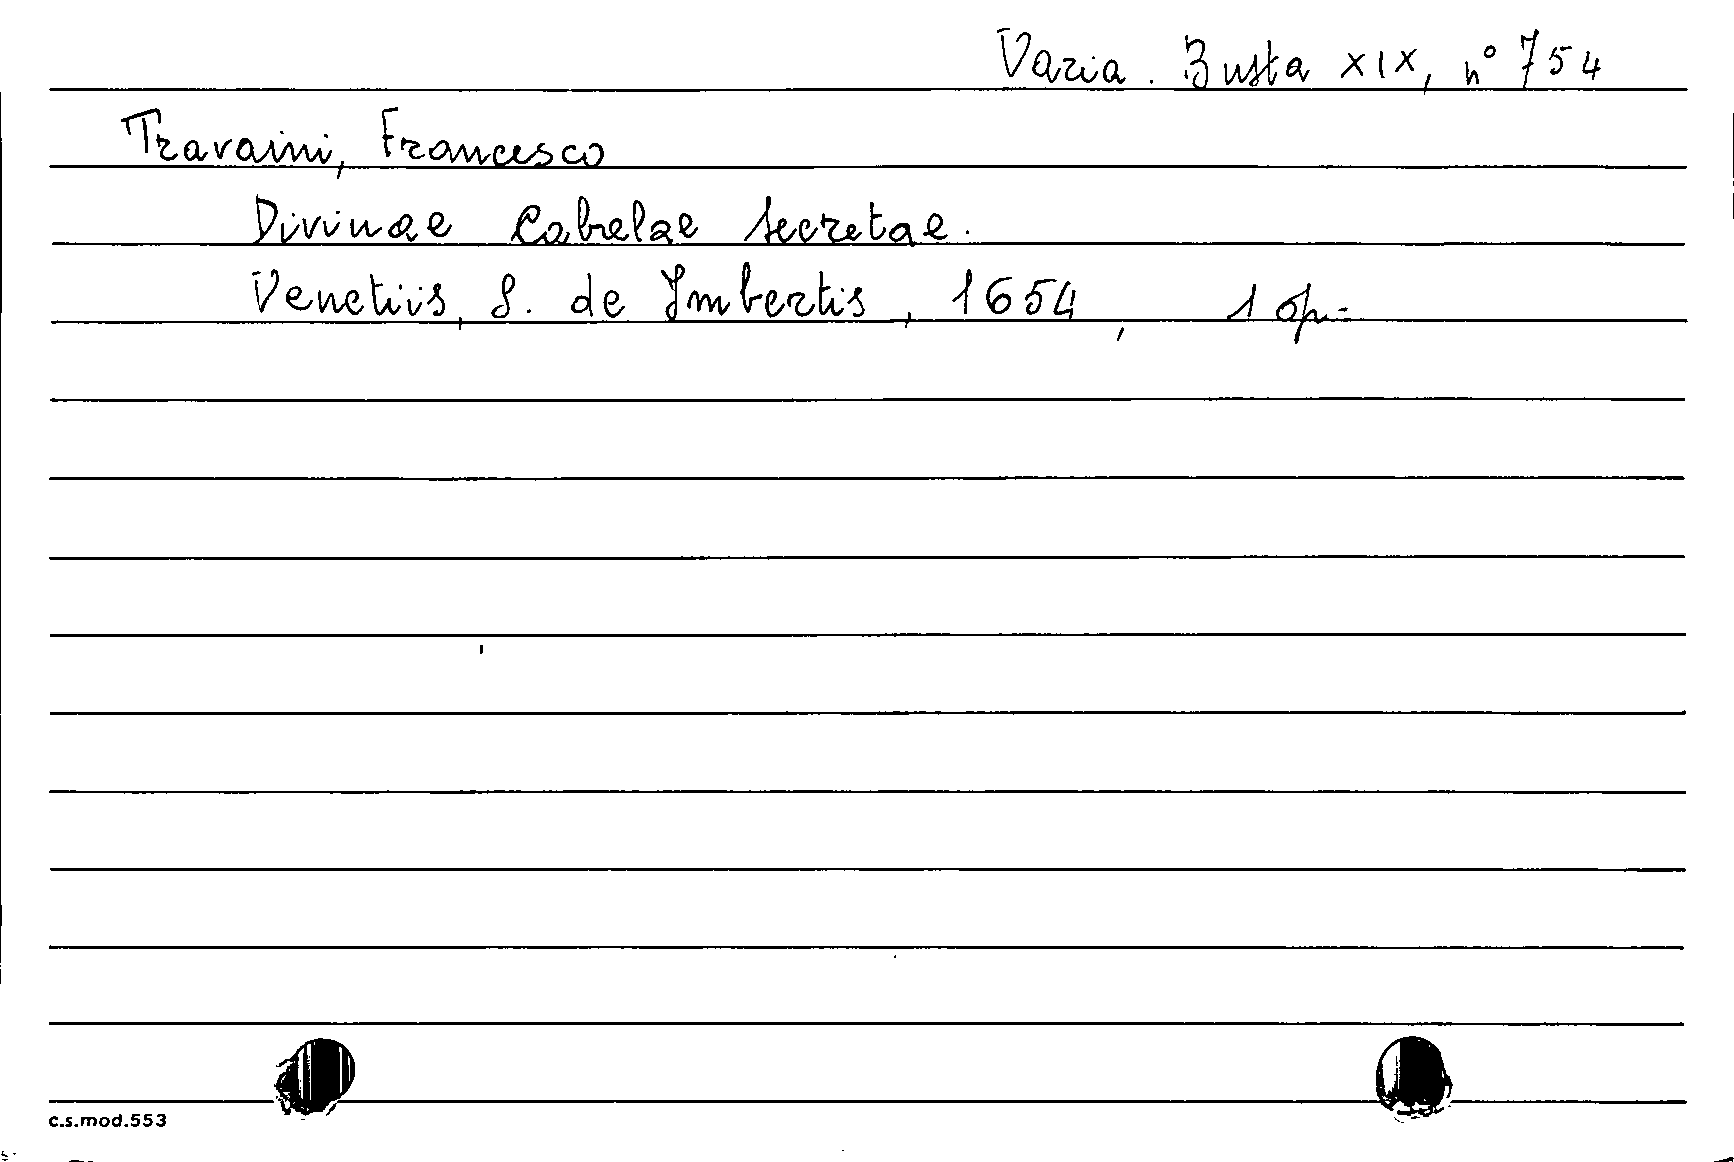 Varia. Busta XIX, n° 754
Travaini, Francesco
Divinae Cabelae secretae.
Venetiis, S. de Imbertis, 1654, 1 op.
c.s.mod.553